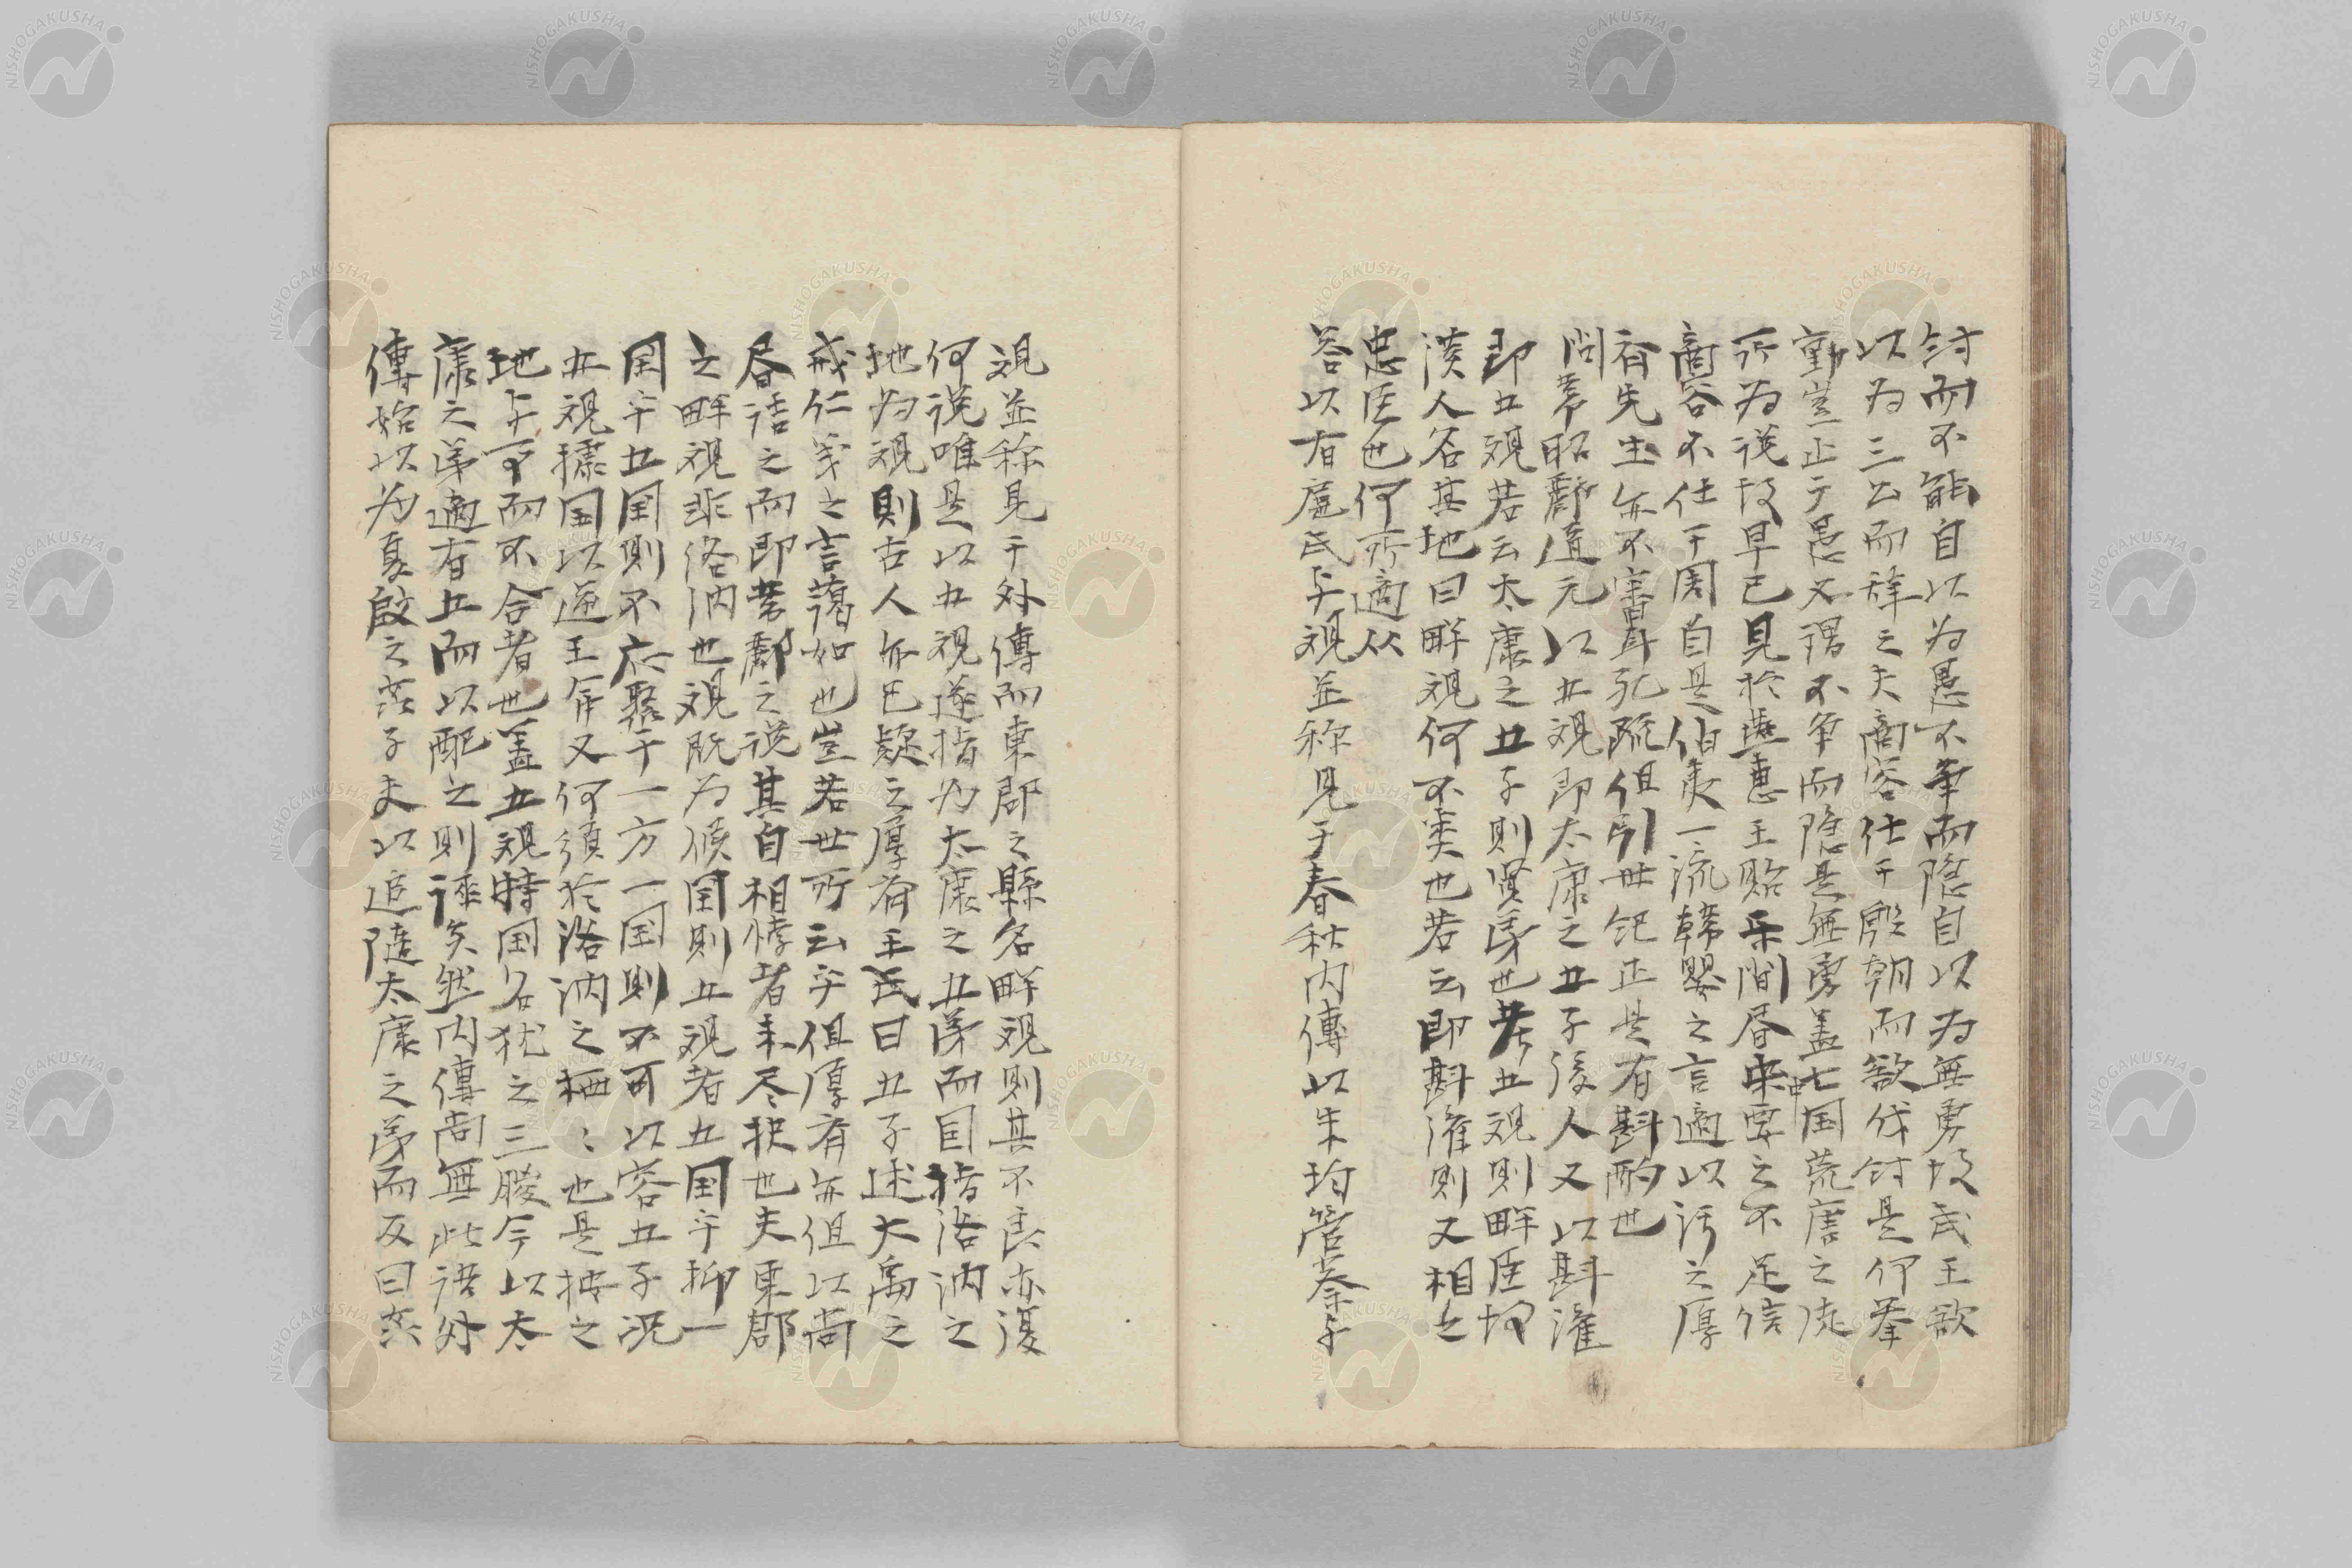 紂而不能自以為愚不爭而隠自以為無勇故武王欲
以為三公而辞之夫商容仕于殷朝而欲伐紂是何挙
動豈止于愚又謂不爭而隠是無勇蓋七国荒唐之徒
所為説故早已見於燕惠王貽樂間昏中要之不足信
商容不仕于周自是伯夷一流韓嬰之言適以汚之厚
斎先生亦不審耳孔疏但引世紀正是有斟酌也
問帯昭酈道元以五観即太康之五子後人又以斟灌
即五観若云太康之五子則賢弟也若五観則畔臣也
漢人名其地曰畔観何不類也若云即斟灌則又相之
忠臣也何所適从
答以有扈氏与観並称見于春秋内傳以朱均管蔡与
観並称見于外傳而東郡之縣名畔観則其不良亦復
何説唯是以五観遂指為太康之五弟而因指洛汭之
地為観則古人亦已疑之厚斎王氏曰五子述大禹之
戒仁義之言藹如也豈若世所云乎但厚斎亦但以尚
昏詰之而即帯酈之説其自相悖者未尽抉也夫東郡
之畔観非洛汭也観既為侯国則五観者五国乎抑一
国乎五国則不應聚于一方一国則不可以容五子况
五観據国以逆王命又何須於洛汭之栖〻也是按之
地与事而不合者也蓋五観特国名犹之三朡今以太
康之弟適有五而以配之則誣矣然内傳尚無此語外
傳始以為夏啟之姦子夫以追随太康之弟而反曰姦